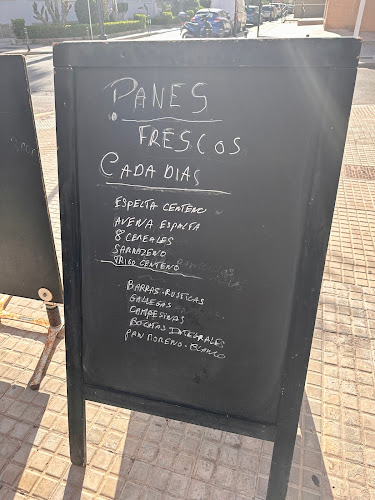 PANES
FRESCOS
CADA DIAS
ESPELTA CENTENO
AVENA ESPALFA
8 CEREALES
SARRAZENO
TRIGO CENTENO
BARRAS-RUSTICAS
GALLEGAS
CAMPESINAS
BOCATAS INTEGRALES
PAN MORENO-BLANCO